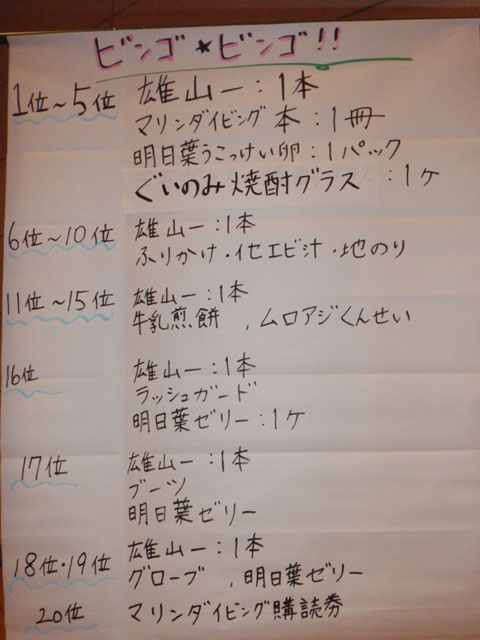 ビンゴ★ビンゴ!!
1位～5位 雄山一：1本
マリンダイビング 本：1冊
明日葉うこっけい卵：1パック
ぐいのみ焼酎グラス：1ヶ
6位～10位 雄山一：1本
ふりかけ・イセエビ汁・地のり
11位～15位 雄山一：1本
牛乳煎餅，ムロアジくんせい
16位 雄山一：1本
ラッシュガード
明日葉ゼリー：1ヶ
17位 雄山一：1本
ブーツ
明日葉ゼリー
18位・19位 雄山一：1本
グローブ，明日葉ゼリー
20位 マリンダイビング購読券